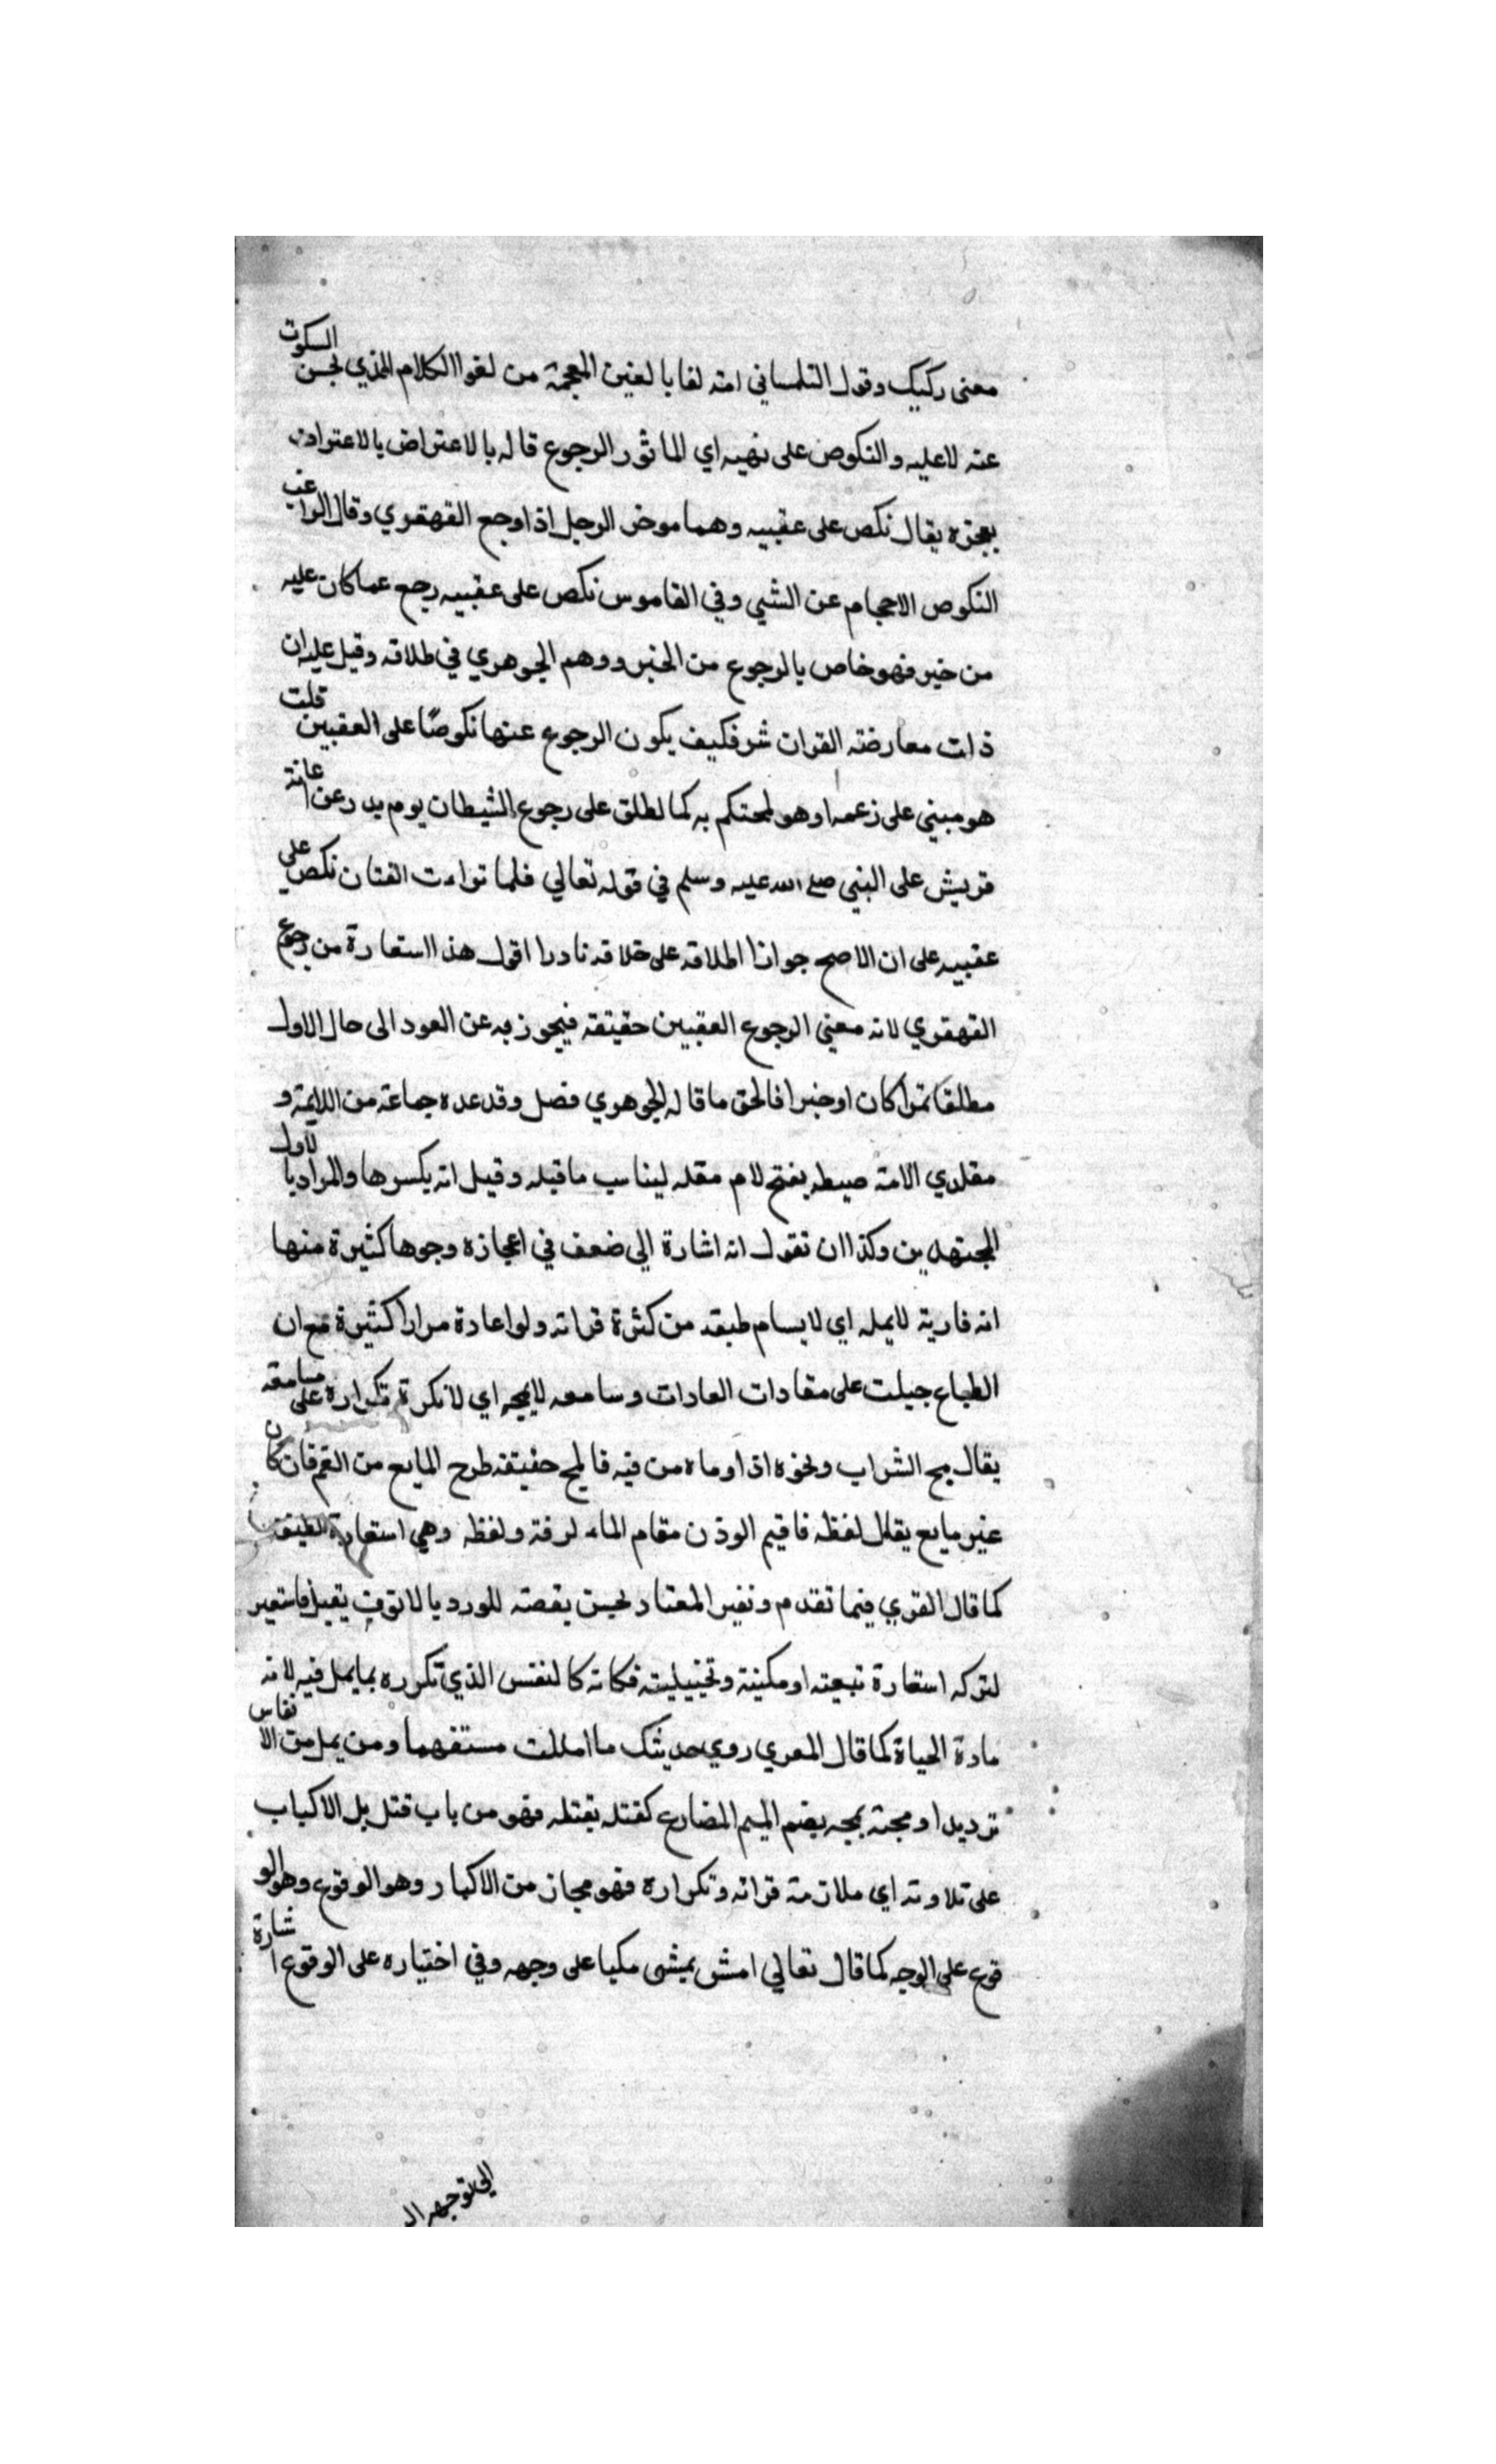 معنى ركيك وقول التلمساني انه لغا بالغين المعجمة من لغوا الكلام الذي لحسن السكوت
عنه لا عليه والنكوص على نهيه اي الماثور الرجوع قاله بالاعتراض بالاعتراف
بعجزه يقال نكص على عقبيه وهما موخر الرجل اذا وجع القهقري وقال الراغب
النكوص الاحجام عن الشي وفي القاموس نكص على عقبيه رجع عما كان عليه
من خير فهو خاص بالرجوع من الخير ووهم الجوهري في طلاقه وقيل عليه ان
ذات معارضته القران شر فكيف يكون الرجوع عنها نكوصًا على العقبين قلت
هو مبني على زعمه او هو لمحتكم به كما لطلق على رجوع الشيطان يوم بدر عن اعانة
قريش على النبي صلى الله عليه وسلم في قوله تعالي فلما تراءت الفتان نكص على
عقبيه على ان الاصح جواز اطلاقه على خلافه نادرا اقول هذا استعارة من رجوع
القهقري لانه معني الرجوع العقبين حقيقة فيجوز به عن العود الى حال الاول
مطلقا كان او خيرا فالحق ما قاله الجوهري فصل وقد عده جماعة من اللايمة و
مقلدي الامة ضبطه بفتح لام مقلد ليناسب ما قبله وقيل انه يكسرها والمراد بالاول
المجتهدين وكذا ان نقول انه اشارة الى ضعف في اعجازه وجوها كثيرة منها
انه قاريه لا يمله اي لا يسام طبعه من كثرة قراته ولو اعادة مرارا كثيرة مع ان
الطباع جبلت على معادات العادات وسامعه لا يمجه اي لا نكرة تكراره على مسامعه
يقال مج الشراب ونحوه اذا وماه من فيه فالمج حقيقة طرح المايع من الفم فان كان
غير مايع يقال لفظه فاقيم الوذن مقام الماء لرقة ولفظه وهي استعارة لطيفة
كما قال القري فيما تقدم ونغير المعتاد لحسن بقصته للورد يا لا توقف يقبل فاستعير
لتركه استعارة تبعيته او مكنية وتخييلية فكانه كالنفس الذي تكرره بما يمل فيه لانه
مادة الحياة كما قال المعري روي حديثك ما امللت مستفهما ومن يمل من الانفاس
ترديدا ومجته يمجه بضم الميم المضارع كقتله يقتله فهو من باب قتل بل الاكباب
على تلاوته اي ملازمة قراته وتكراره فهو مجاز من الاكبار وهو الوقوع وهو الو
قوع على الوجه كما قال تعالي امش يمشى مكبا على وجهه وفي اختياره على الوقوع اشارة
الى توجهه ال